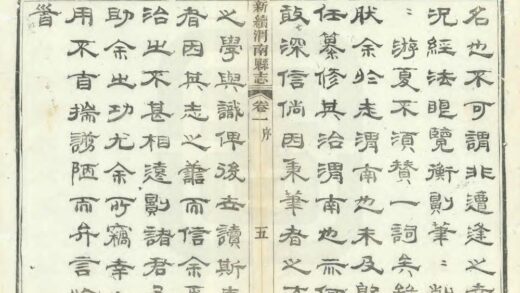 名也不可謂非遭逢之
況經法眼覽衡勘筆〻削
〻游夏不須贊一詞矣
狀余於走渭南也未及
任纂修其治渭南也而何
敢深信倘因秉筆者之不
新續渭南縣志 卷一 序 五
之學與識俾後世讀斯
者因其志之而信余
治之不甚相遠勘諸君
助余之功尤余所竊幸
用不自揣謭陋而弁言
首